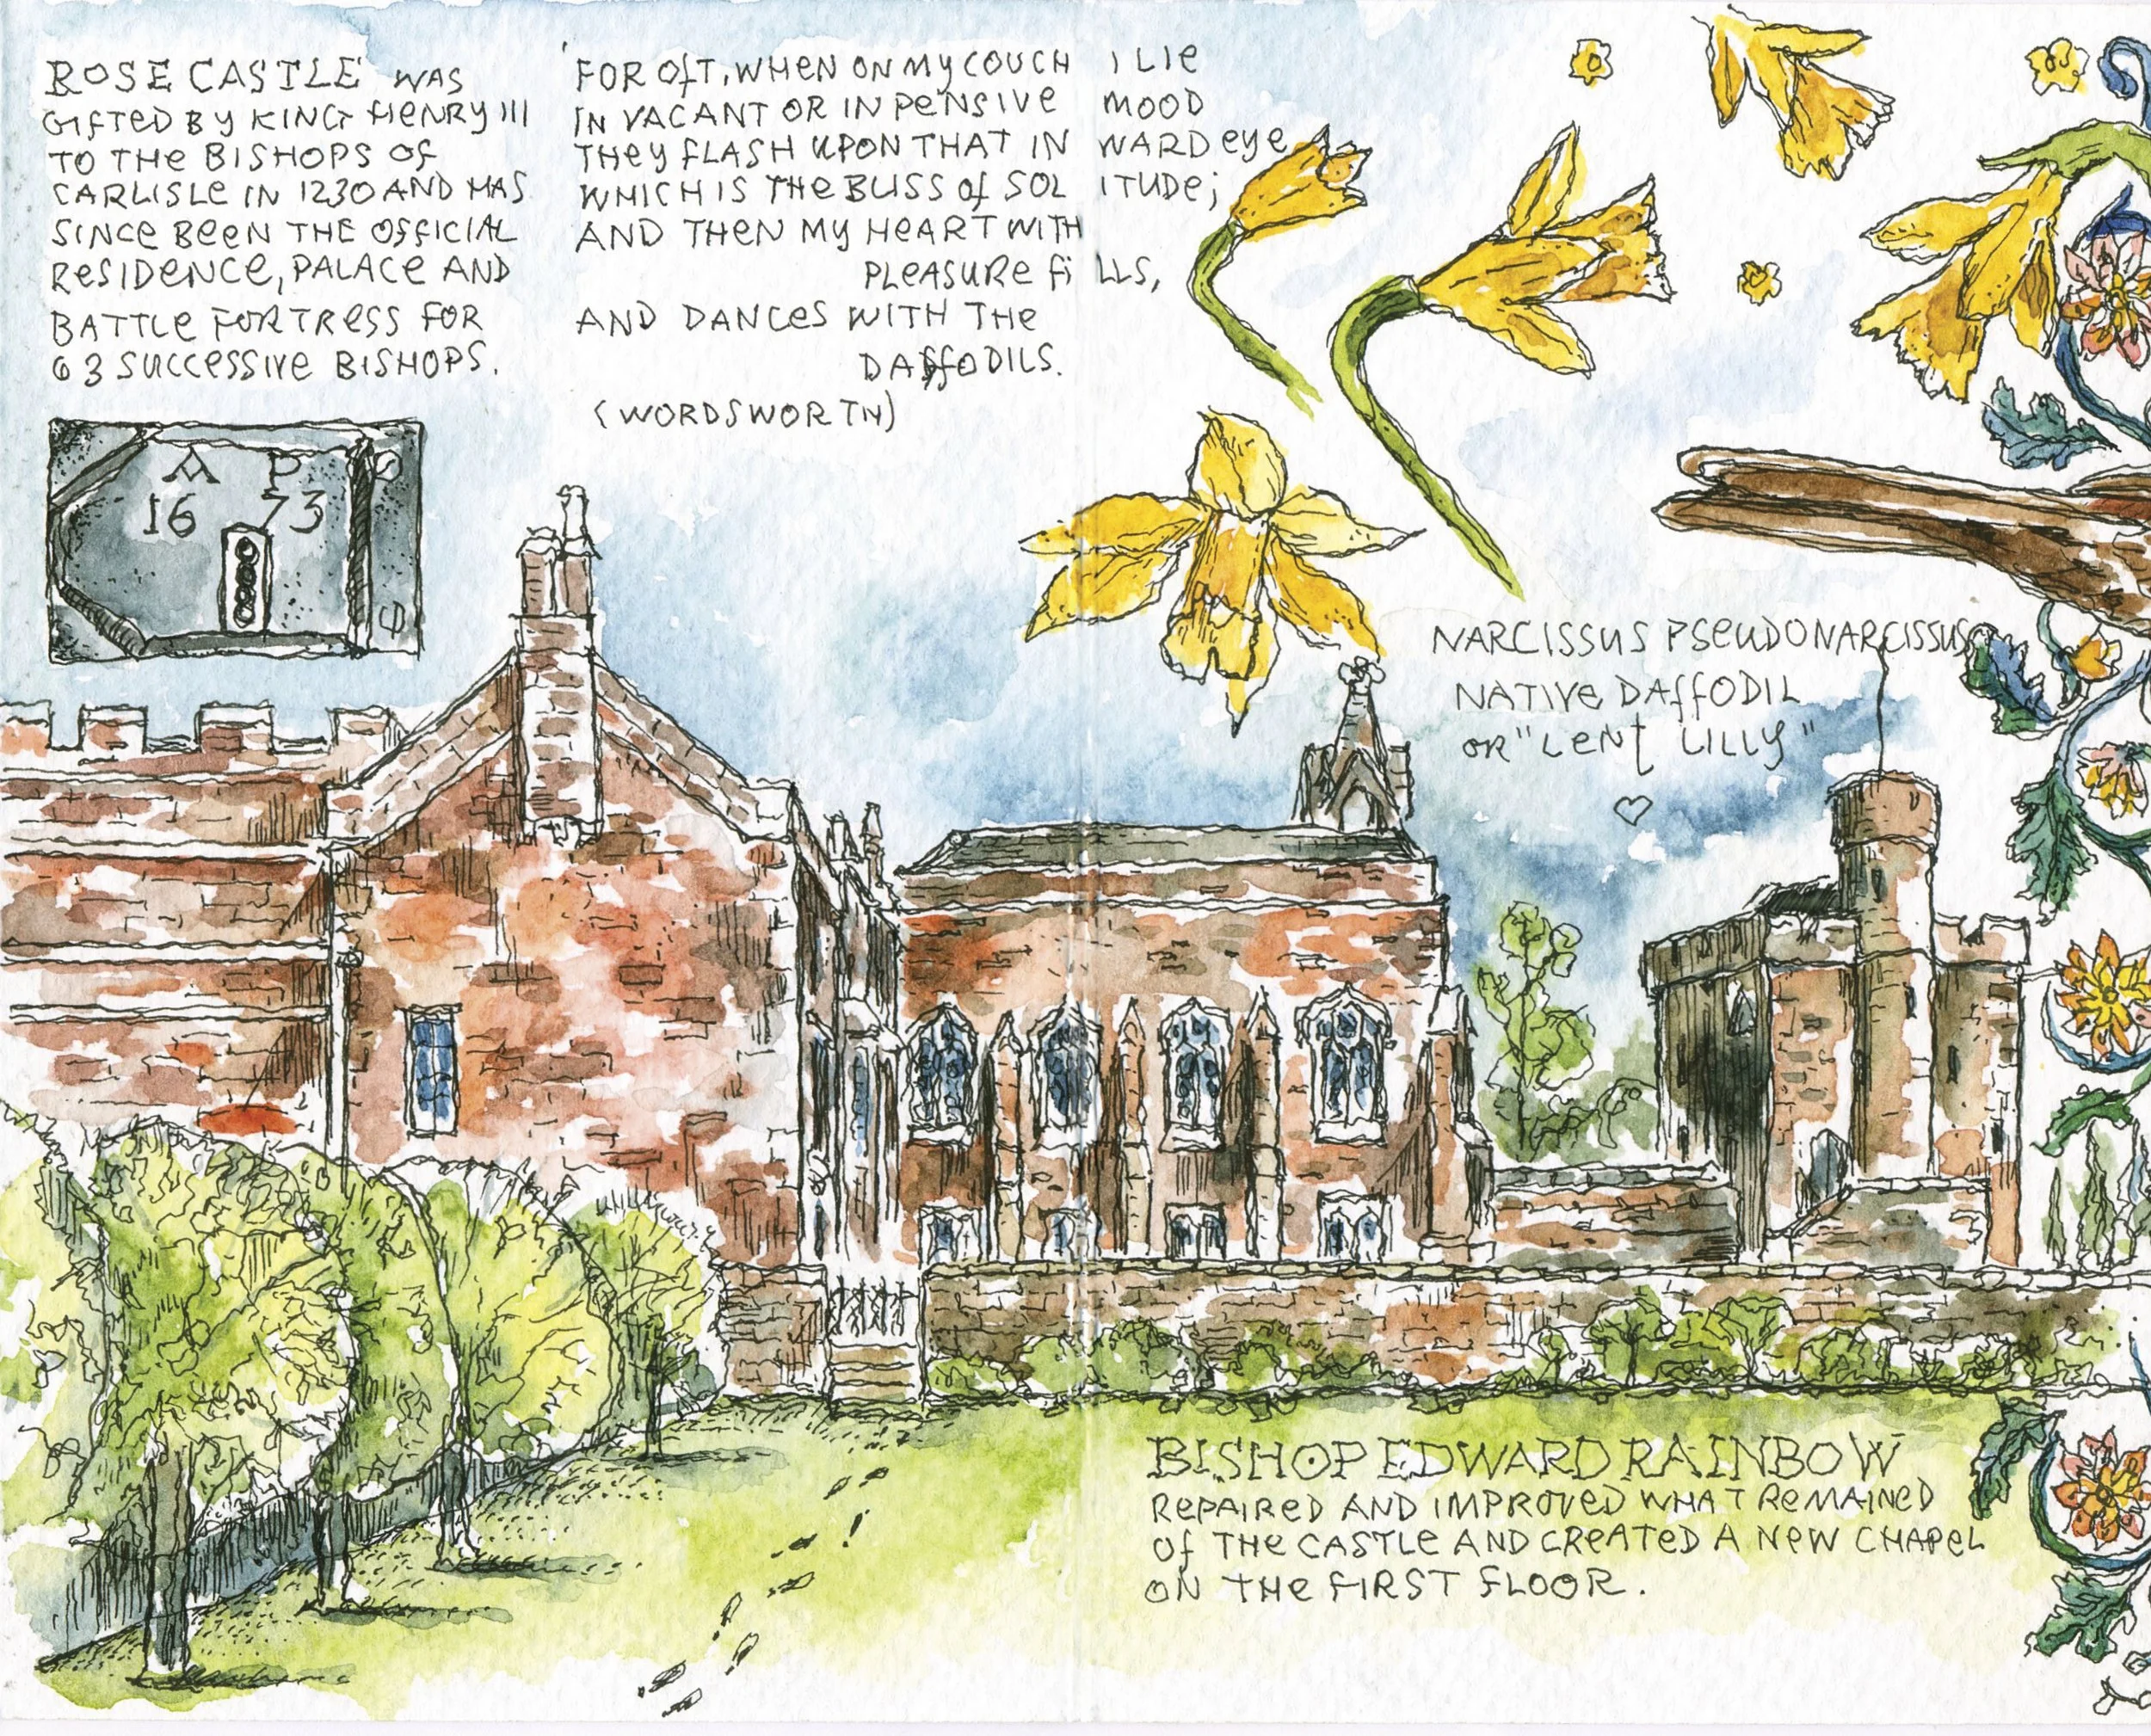 ROSE CASTLE WAS
GIFTED BY KING HENRY III
TO THE BISHOPS OF
CARLISLE IN 1230 AND HAS
SINCE BEEN THE OFFICIAL
RESIDENCE, PALACE AND
BATTLE FORTRESS FOR
63 SUCCESSIVE BISHOPS.
A P
16 73
'FOR OFT, WHEN ON MY COUCH I LIE
IN VACANT OR IN PENSIVE MOOD
THEY FLASH UPON THAT INWARD EYE
WHICH IS THE BLISS OF SOLITUDE;
AND THEN MY HEART WITH
PLEASURE FILLS,
AND DANCES WITH THE
DAFFODILS.
(WORDSWORTH)
NARCISSUS PSEUDONARCISSUS
NATIVE DAFFODIL
OR "LENT LILLY"
BISHOP EDWARD RAINBOW
REPAIRED AND IMPROVED WHAT REMAINED
OF THE CASTLE AND CREATED A NEW CHAPEL
ON THE FIRST FLOOR.